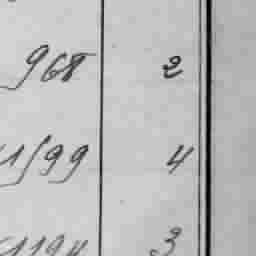 968 2
1599 4
1194 3